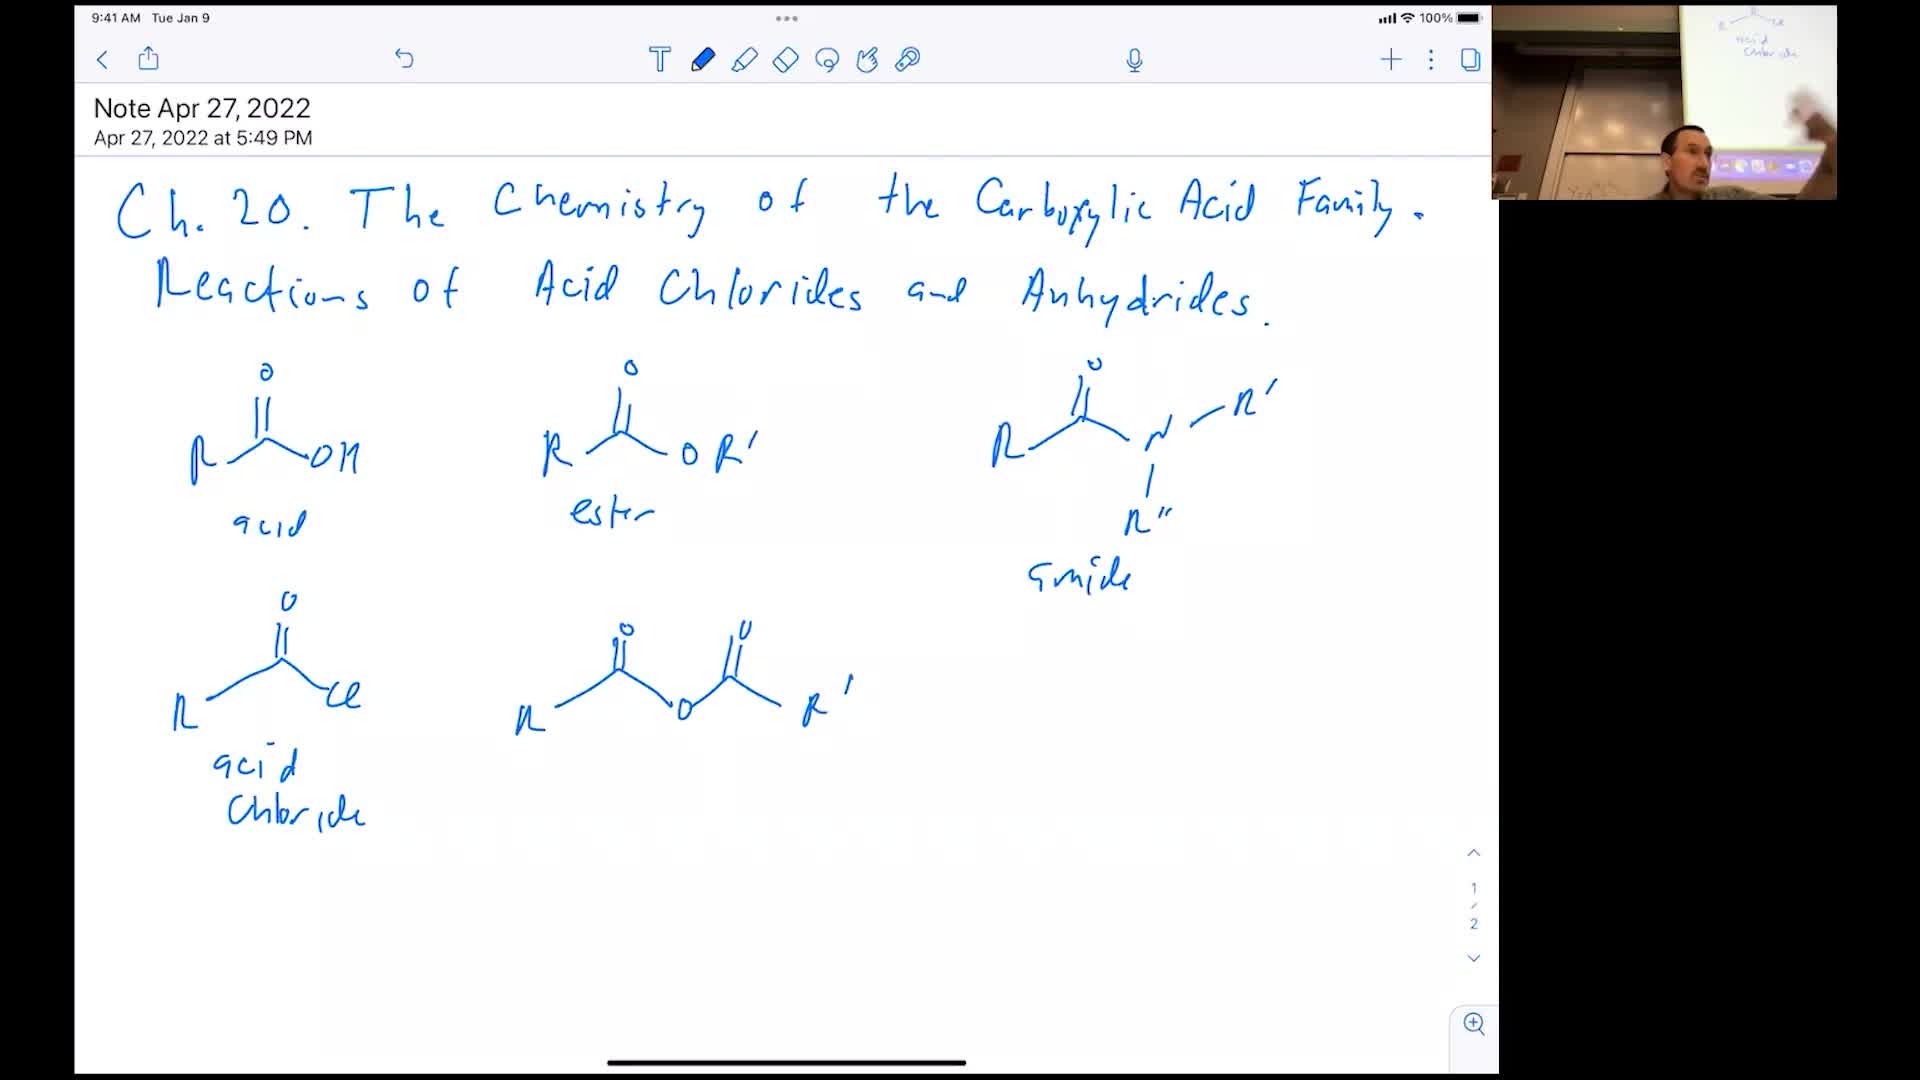 9:41 AM Tue Jan 9
100%
Note Apr 27, 2022
Apr 27, 2022 at 5:49 PM
Ch. 20. The Chemistry of the Carboxylic Acid Family.
Reactions of Acid Chlorides and Anhydrides.
O
R OH
acid
O
R O R'
ester
O
R N R'
R"
amide
O
R Cl
acid
chloride
O O
R O R'
1
/
2
R Cl
acid
chloride